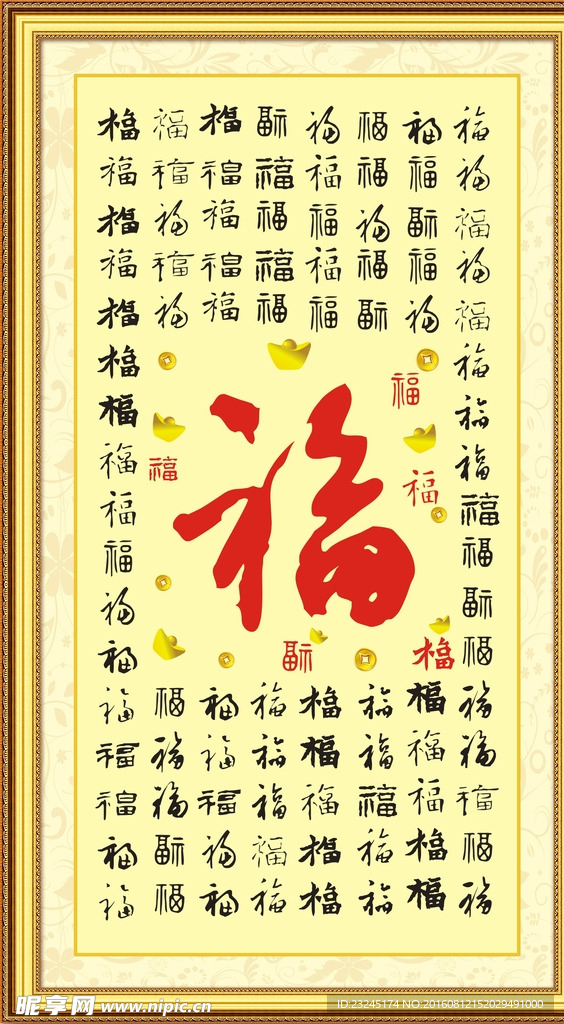 福福福福福福福福
福福福福福福福福
福福福福福福福福
福福福福福福福福
福福福福福福福福
福 福
福
福 福
福 福 福
福
福 福
福
福 福
福 福
福 福 福 福
福福福福福福福福
福福福福福福福福
福福福福福福福福
福福福福福福福福
福福福福福福福福
昵享网 www.nipic.cn
ID:23245174 NO:20160812152029491000